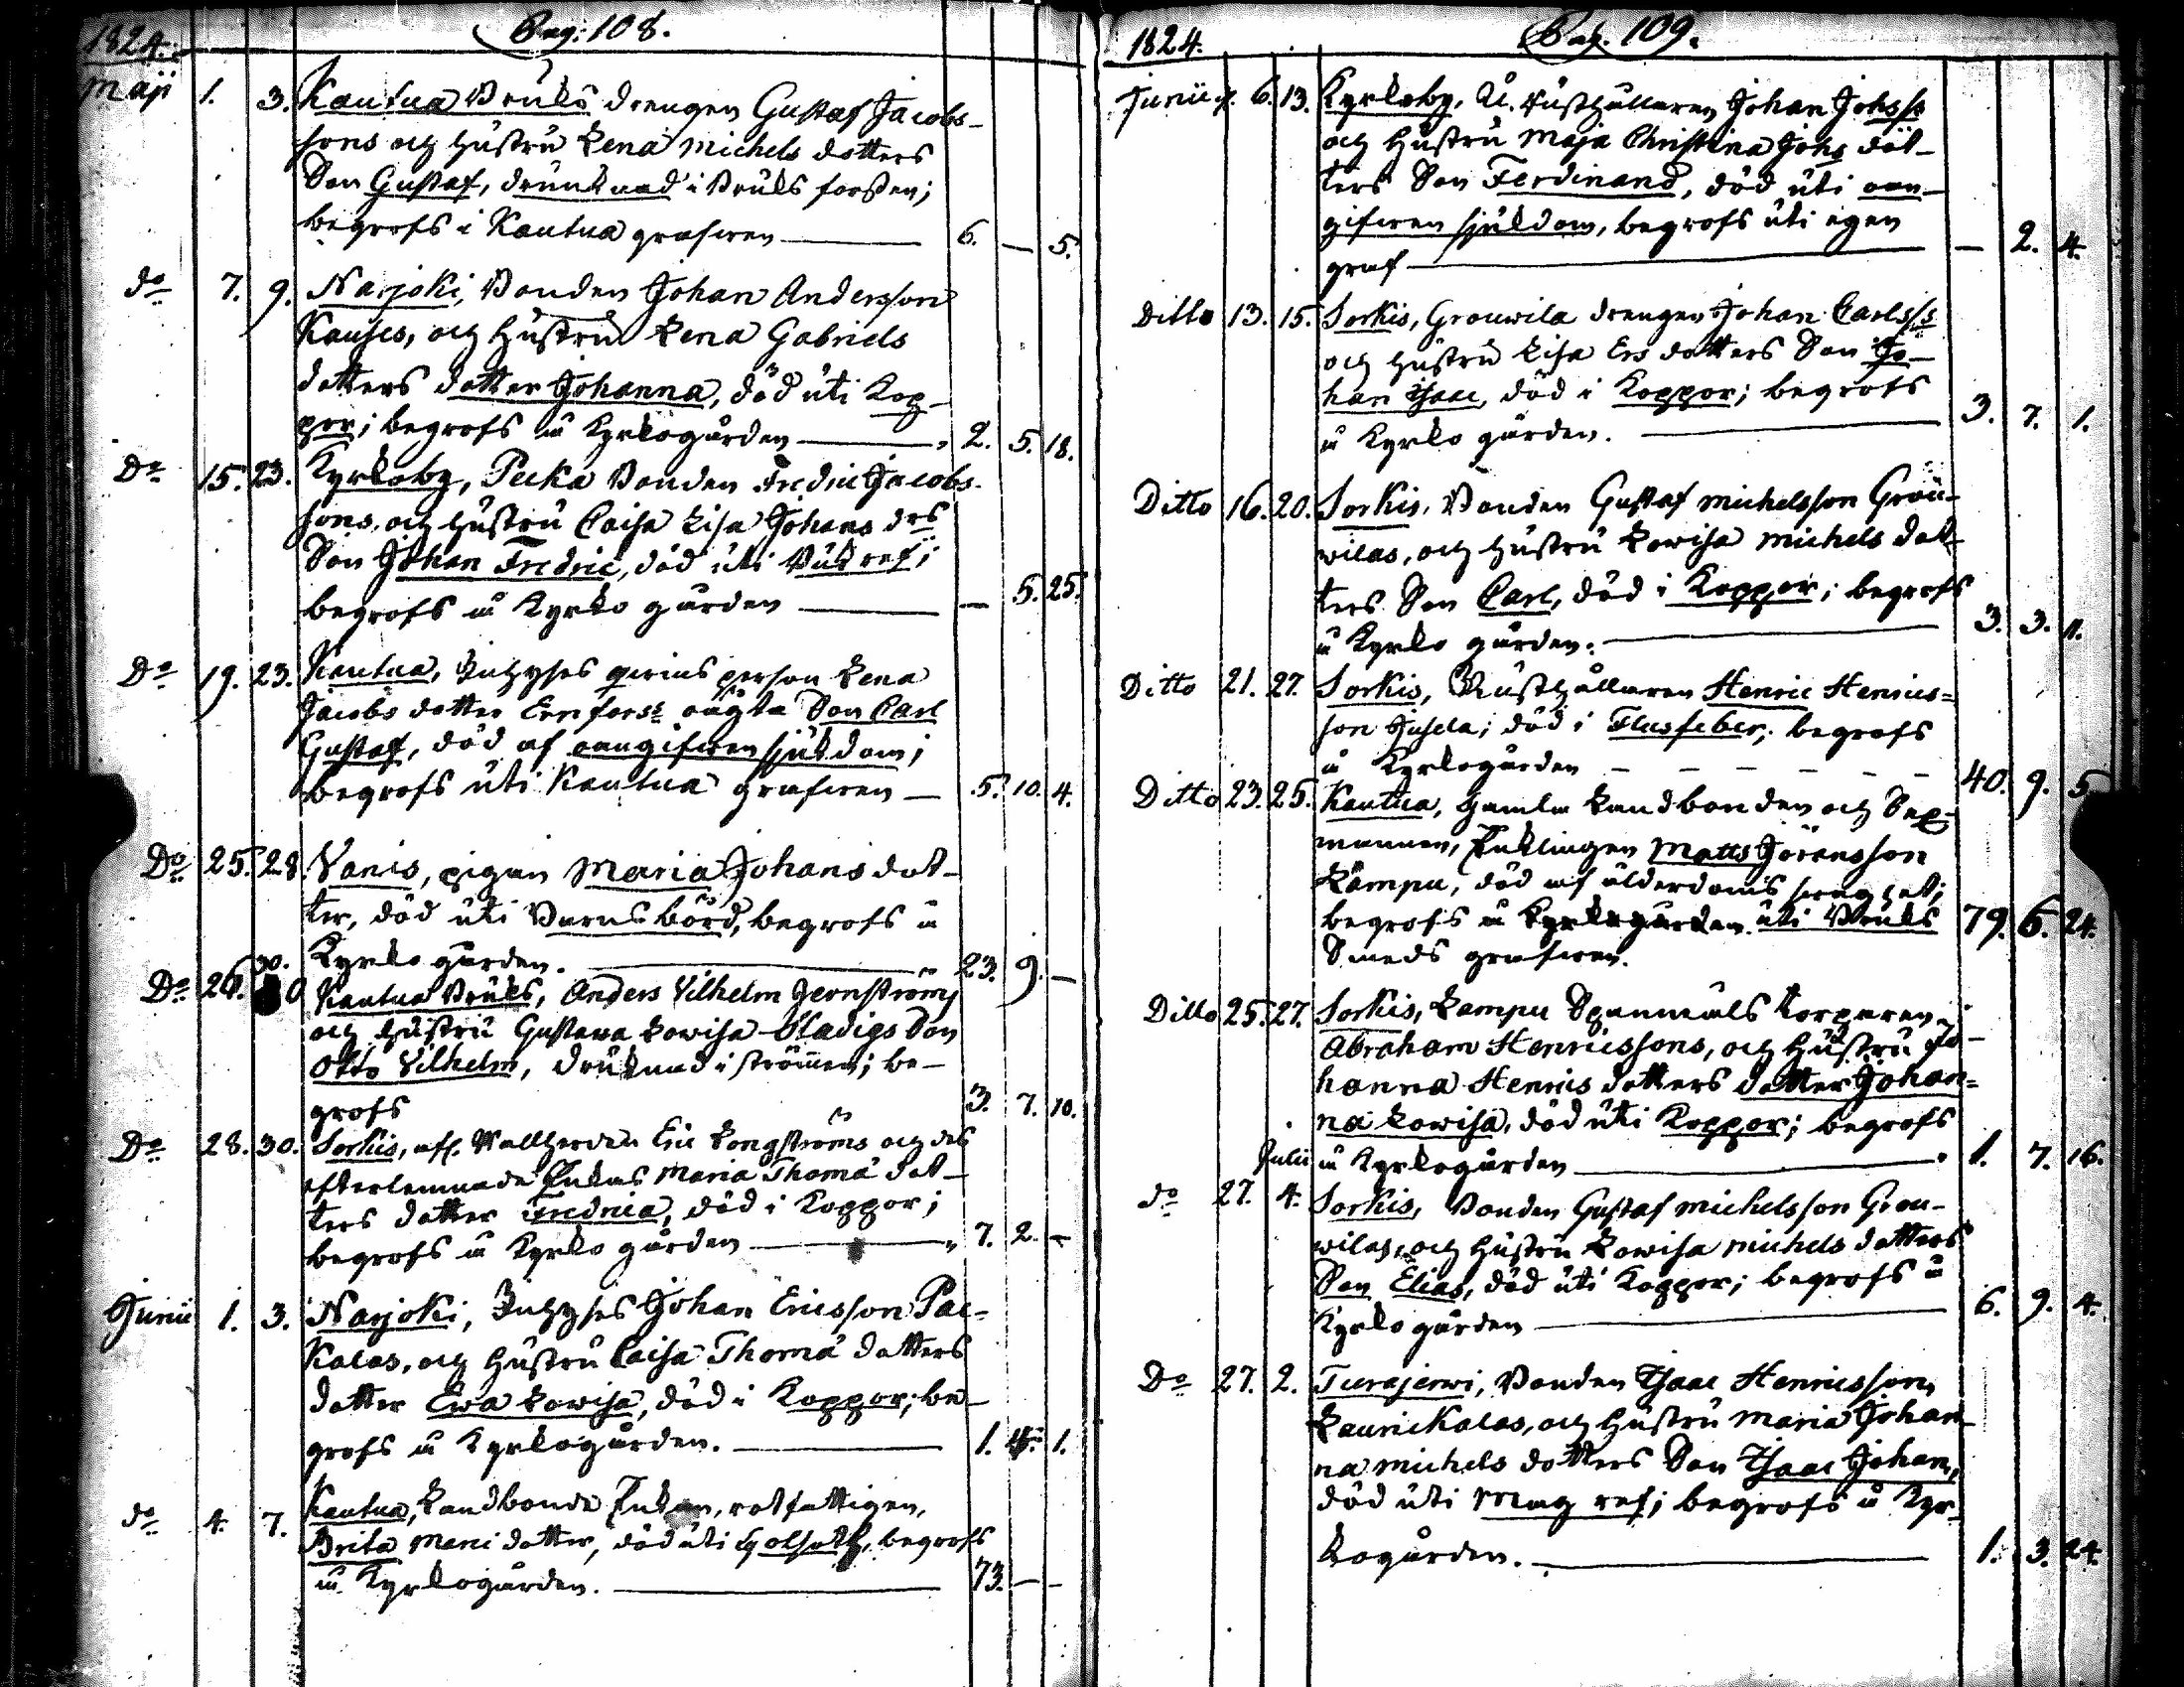 1824. Pag: 108.
Maji 1. 3. Kautua Bruks drengen Gustaf Jacobs-
sons och hustru Lena Michels dotters
Son Gustaf, drunknad i Bruks forssen;
begrofs i Kautua grafwen — 6. — 5.
do 7. 9. Narjoki, Bonden Johan Andersson
Kauses, och hustru Lena Gabriels
dotters dotter Johanna, död uti Kop-
por; begrofs å Kyrkogården — 2. 5. 18.
Do 15. 23. Kyrkoby, Pecka Bonden Fredric Jacobs-
sons, och hustru Caisa Lisa Johans drs
Son Johan Fredric, död uti Bukref;
begrofs å Kyrko gården — — 5. 25.
Do 19. 23. Kautua, Inhyses qwins person Lena
Jacobs dotter Ernforss oägta Son Carl
Gustaf, död af oangifwen sjukdom;
begrofs uti Kautua grafwen — 5. 10. 4.
Do 25. 28. Vanis, pigan Maria Johans dot-
ter, död uti Barnsbörd, begrofs å
Kyrko gården. — 23. 9. —
Do 26. 30. Kautua Bruks, Anders Vilhelm Jernströms
och hustru Gustava Lowisa Stadigs Son
Otto Vilhelm, drunknad i strömmen; be-
grofs 3. 7. 10.
Do 28. 30. Sorkis, afl. Wallherden Eric Longströms och des
efterlemnade Enkas Maria Thomæ dot-
ters dotter Fredrica, död i Koppor;
begrofs å Kyrko gården — 7. 2. —
Junii 1. 3. Narjoki, Inhyses Johan Ericsson Pac-
kalas, och hustru Caisa Thomæ dotters
dotter Ewa Lowisa, död i Koppor; be-
grofs å Kyrkogården. — 1. 1.
do 4. 7. Kautua, Landbonde Enkan, rotfattigen,
Brita dotter, död uti begrofs
å Kyrkogården. — 73. — —
1824. Pag. 109.
Junii 6. 13. Kyrkoby, Rusthållaren Johan Johss
och Hustru Maja Christina Johs dot-
ters Son Ferdinand, död uti oan-
gifwen sjukdom, begrofs uti egen
graf — — 2. 4.
Ditto 13. 15. Sorkis, Grouwila drengen Johan Carlss
och hustru Lisa Ers dotters Son Jo-
han Isaac, död i Koppor; begrofs
å Kyrko gården. — 3. 7. 1.
Ditto 16. 20. Sorkis, Bonden Gustaf Michelsson Grou-
wilas, och hustru Lowisa Michels dot-
ters Son Carl, död i Koppor; begrofs
å Kyrko gården. — 3. 3. 11.
Ditto 21. 27. Sorkis, Rusthållaren Henric Henrics-
son Jusela; död i Flussfeber, begrofs
å Kyrkogården — 40. 9. 5
Ditto 23. 25. Kautua, Gamla Landbonden och Sex-
mannen, Enklingen Matts Jöransson
Lampu, död af ålderdoms swaghet;
begrofs å Kyrkogården. uti Bruks 79. 6. 24.
Smeds grafwen.
Ditto 25. 27. Sorkis, Lampu Spanmåls Torparen
Abraham Henricssons, och Hustru Jo-
hanna Henrics dotters dotter Johan-
na Lowisa, död uti Koppor; begrofs
Julii å Kyrkogården — 1. 7. 16.
do 27. 4. Sorkis, Bonden Gustaf Michelsson Grou-
wilas, och hustru Lowisa Michels dotters
Son Elias, död uti Koppor; begrofs å
Kyrko gården — 6. 9. 4.
Do 27. 2. Turajerwi, Bonden Isaac Henricsson
Laurickalas, och hustru Maria Johan-
na Michels dotters Son Isaac Johan,
död uti Mag ref; begrofs å Kyr-
kogården. — 1. 3. 24.